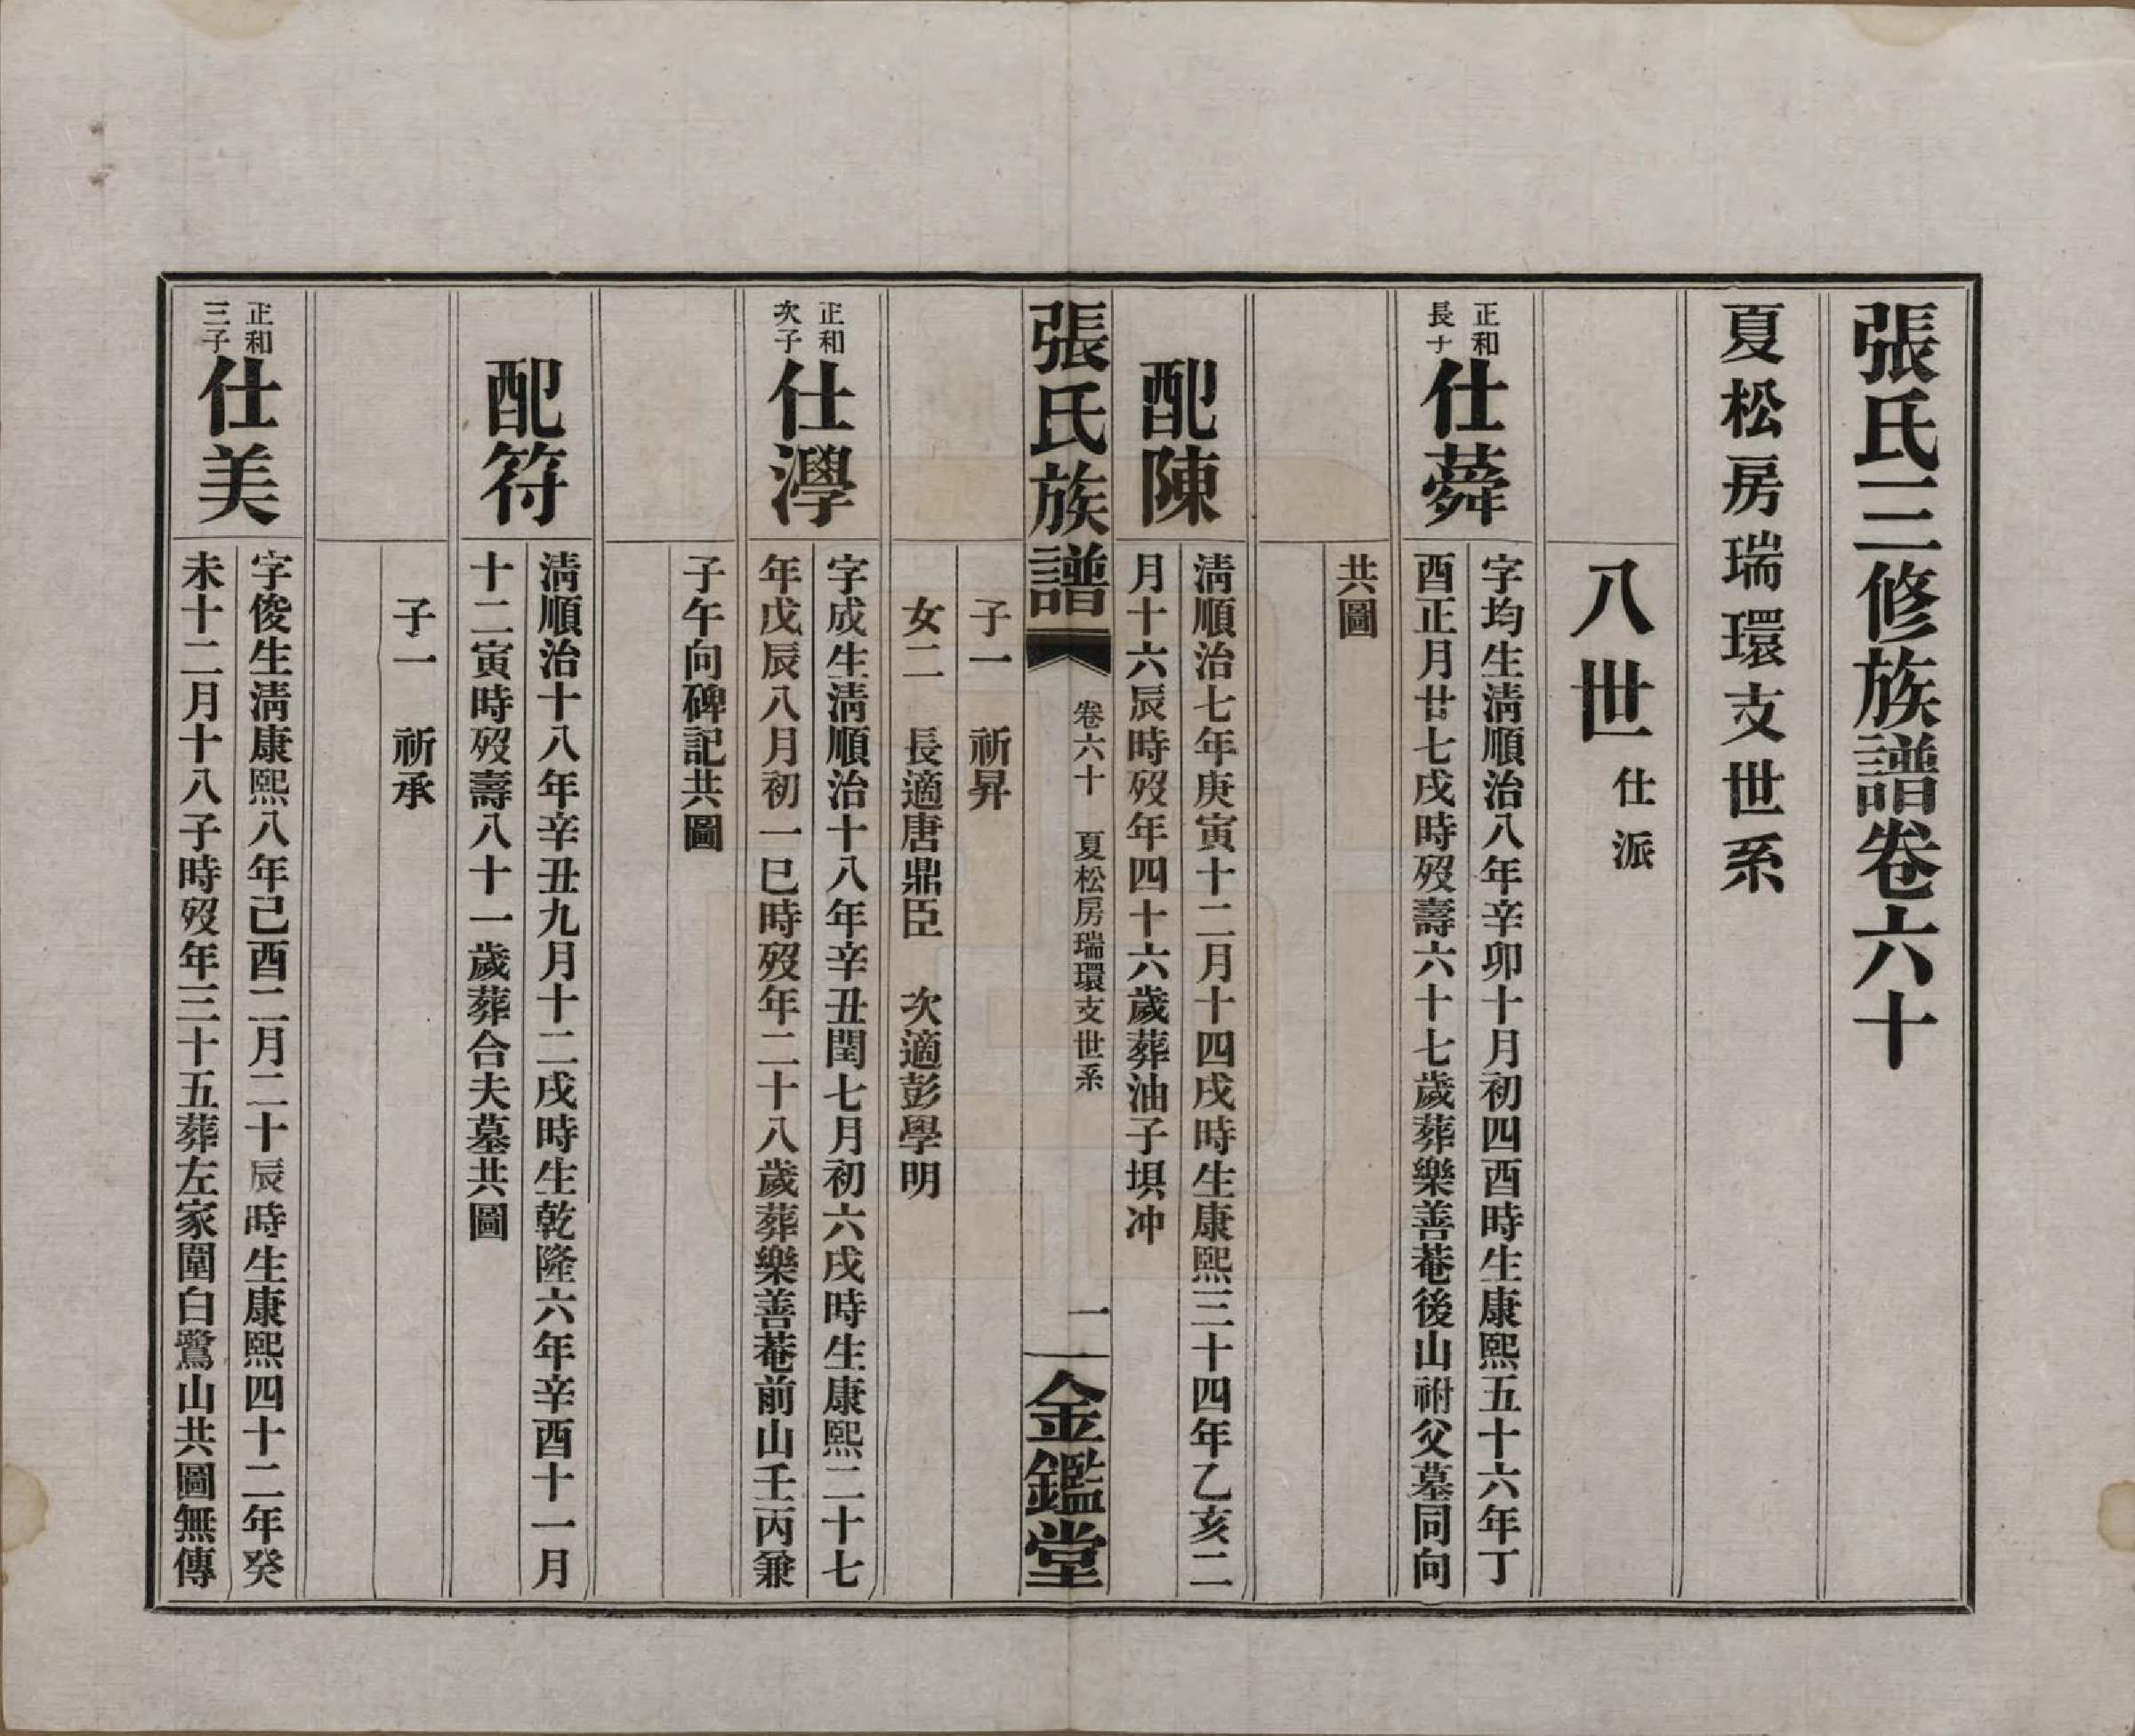 張氏三修族譜卷六十
夏松房瑞環支世系
八世 仕派
正和
長子
仕蕣
字均生清順治八年辛卯十月初四酉時生康熙五十六年丁
酉正月廿七戌時歿壽六十七歲葬樂善菴後山祔父墓同向
共圖
配陳
清順治七年庚寅十二月十四戌時生康熙三十四年乙亥二
月十六辰時歿年四十六歲葬油子垻冲
張氏族譜
卷六十 夏松房瑞環支世系
一
金鑑堂
子一 祈昇
女二 長適唐鼎臣 次適彭學明
正和
次子
仕澩
字成生清順治十八年辛丑閏七月初六戌時生康熙二十七
年戊辰八月初一巳時歿年二十八歲葬樂善菴前山壬丙兼
子午向碑記共圖
配符
清順治十八年辛丑九月十二戌時生乾隆六年辛酉十一月
十二寅時歿壽八十一歲葬合夫墓共圖
子一 祈承
正和
三子
仕美
字俊生清康熙八年己酉二月二十辰時生康熙四十二年癸
未十二月十八子時歿年三十五葬左家圍白鷺山共圖無傳